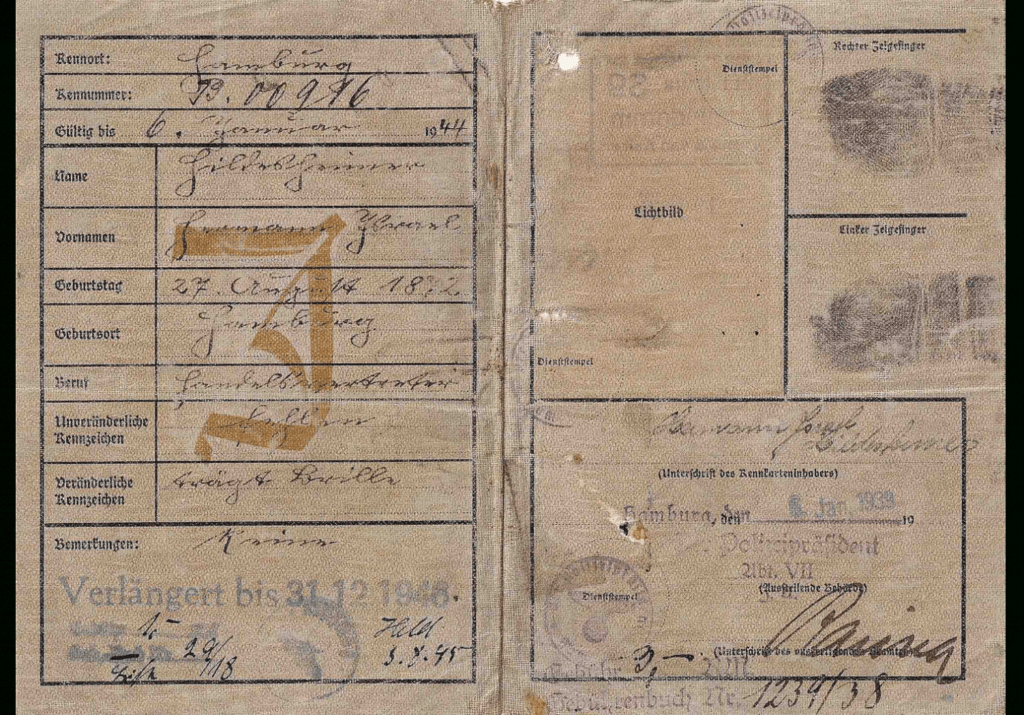 Kennort: Hamburg
Kennummer: B. 00916
Gültig bis 6. Januar 1944
Name Hildesheimer
Vornamen Hermann Israel
J
Geburtstag 27. August 1872
Geburtsort Hamburg
Beruf Handelsvertreter
Unveränderliche Kennzeichen fehlen
Veränderliche Kennzeichen trägt Brille
Bemerkungen: Keine
Verlängert bis 31.12.1946.
29/18
Dienststempel
Rechter Zeigefinger
Lichtbild
Linker Zeigefinger
Dienststempel
Hermann Israel
Hildesheimer
(Unterschrift des Kennkarteninhabers)
Hamburg, den 6. Jan. 1939 19
Polizeipräsident
Abt. VII
(Ausstellende Behörde)
Dienststempel
(Unterschrift des ausfertigenden Beamten)
Gebühr 3,-
Gebührenbuch Nr. 1239/38